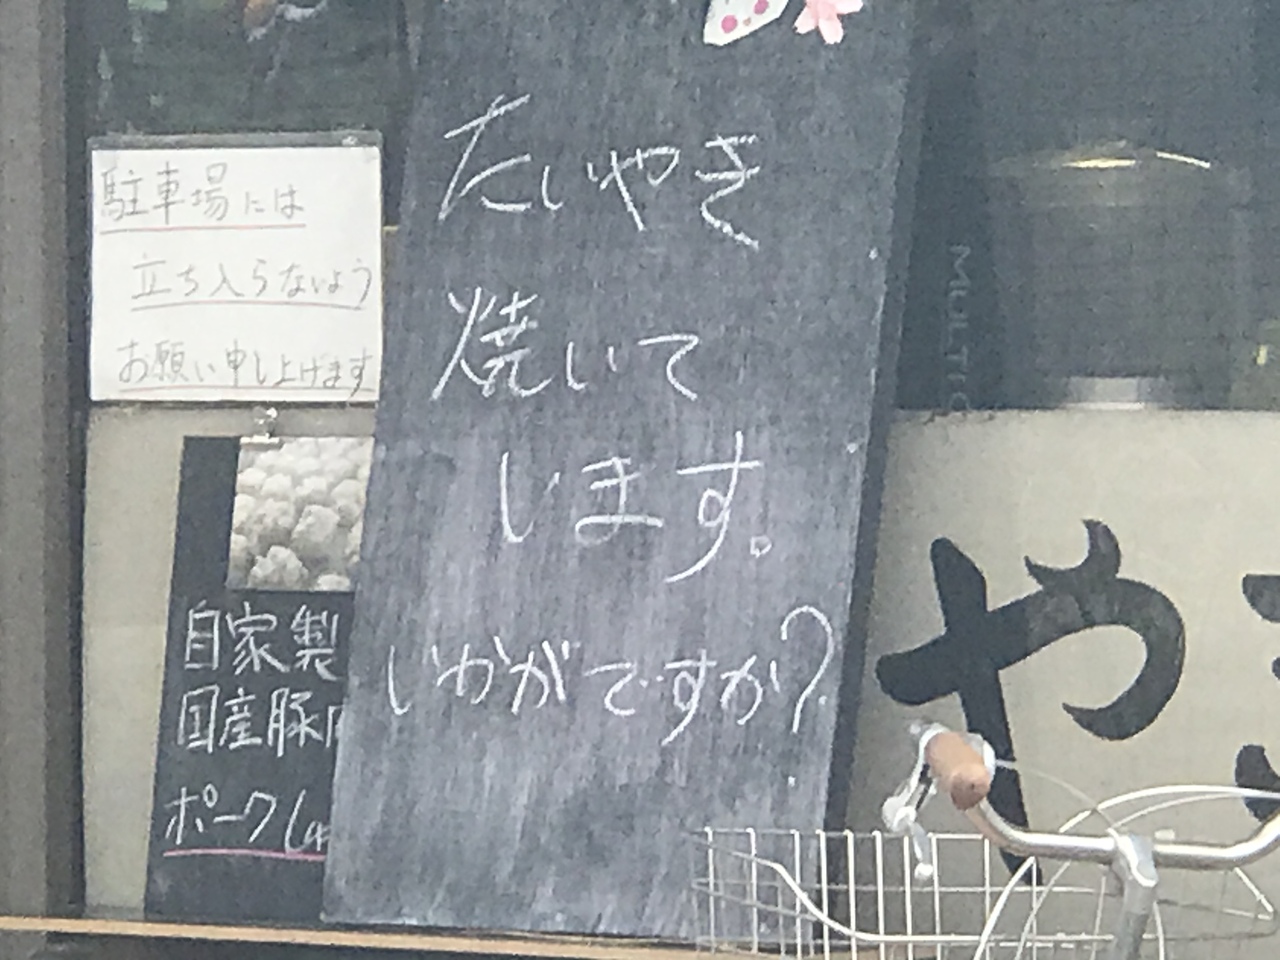 駐車場には
立ち入らないよう
お願い申し上げます
たいやき
焼いて
します。
いかがですか?
自家製
国産豚
ポークしゅ
MULTI
や